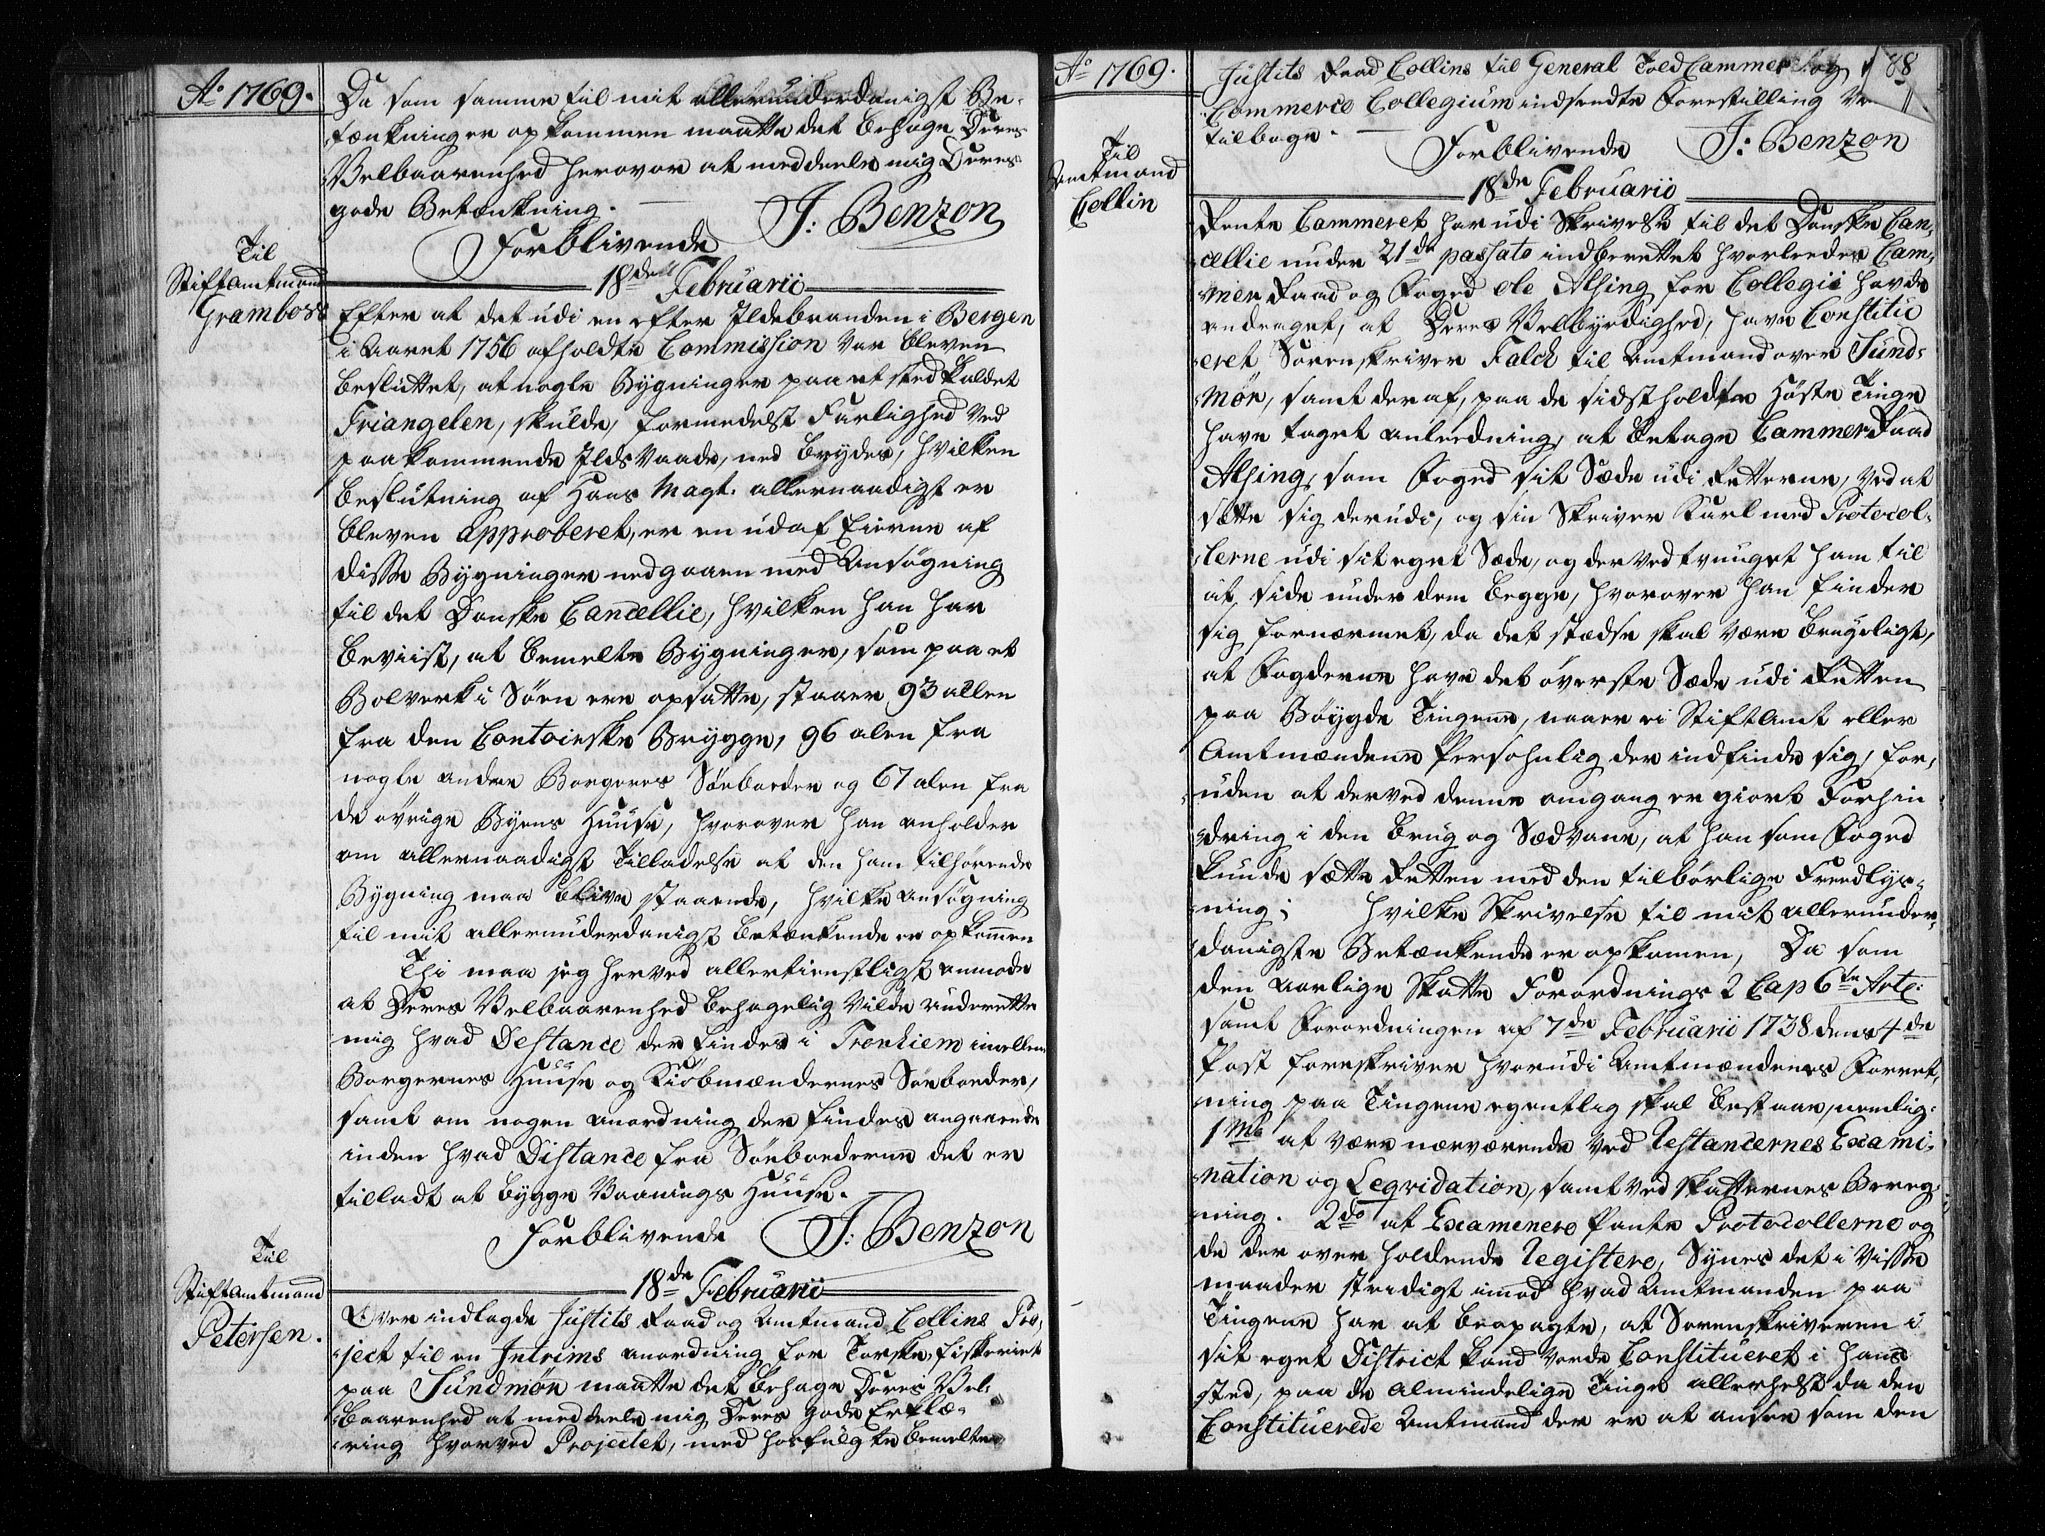 Ao 1769.
Da som samme til mit allerunderdanigst Be-
tænkninger opkommen maatte det behage Deres
Velbaarenhed herover at meddeele mig Deres
gode Betænkning.
Forblivende J: Benzon
18de Februarii
Til
Stiftamtmand
Grambow
Efter at det udi en efter Ildebranden i Bergen
i Aaret 1756 afholdte Commission var bleven
besluttet, at nogle Bygninger paa et sted kaldet
Triangelen, skulde, formedelst Farlighed ved
paakommende Ilds Vaade, ned brydes, hvilken
beslutning af Hans Mayt. allernaadigst er
bleven approberet, er en udaf Eierne af
disse Bygninger nedgaaen med Ansøgning
til det Danske Cancellie, hvilken han har
beviist, at bemelte Bygninger, som paa et
Bolverk i Søen ere opsatte, staaer 93 allen
fra den Contoirske Brygge, 96 alen fra
nogle andre Borgeres Søeboeder og 67 alen fra
de övrige Byens Huuse, hvorover han anholder
om allernaadigst Tilladelse at den ham tilhørende
Bygning maa blive staaende, hvilke ansøgning
til mit allerunderdanigst betænkende er opkommen
Thi maa jeg herved allertienstligst anmode
at Deres Velbaarenhed behagelig vilde underrette
mig hvad Destance der findes i Tronhiem imellem
Borgernes Huuse og Kiöbmændernes Søeboeder,
samt om nogen anordning der findes angaaende
inden hvad Distance fra Søeboederne det er
tilladt at bygge Vaanings Huuse.
Forblivende J: Benzon
18de Februarii
Til
Stiftamtmand
Petersen.
Over indlagde Justits Raad og Amtmand Collins Pro-
ject til en Intrims anordning for Torske-fiskeriet
paa Sundmør maatte det behage Deres Vel-
baarenhed at meddeele mig Deres gode Erklæ-
ring hvorved Projectet, med hosfuigte bemelte
Ao 1769.
88
Justits Raad Collins til General Told Cammer og
Commerce Collegium indsendte Forestilling
tilbage.
Forblivende J: Benzon
18de Februarii
Til
Amtmand
Collin
Rente Cammeret har udi Skrivelse til det Danske Can-
cellie under 21de passato indberettet hvorledes Cam-
mer Raad og Foged Ole Alsing for Collegii havde
andraget, at Deres Velbyrdighed, have Constitu
eret Sorenskriver Falch til Amtmand over Sund-
mør, samt deraf, paa de sidstholdte Høste Tinge
have taget anledning, at betage Cammer Raad
Alsing, som Foged sit Sæde udi Retterne, ved at
sætte sig derudi, og sin Skriver Karl med Protocol-
lerne udi sit eget Sæde, og derved tvunget ham til
at side under dem begge, hvorover han finder
sig fornærmet, da det stædse skal være brugeligt,
at Fogderne have det överste Sæde udi Retten
paa Bøygde Tingene, naaer ei Stiftamt eller
Amtmændene Persohnlig der indfinde sig, for-
uden at derved denne omgang er giort Forhin
dring i den Brug og Sædvane, at han som Foged
kunde sætte Retten med den tilbørlige Freedlys-
ning; hvilke Skrivelse til mit allerunder-
danigste Betænkende er opkomen, Da som
den aarlige Skatte Forordnings 2 Cap 6te Artc:
samt Forordningen af 7de Februarii 1738 dens 4de
Post foreskriver hvorudi Amtmændenes Forret-
ning paa Tingene egentlig skal bestaae, nemlig:
1mo at være nærværende ved Restancernes Exami-
nation og Leqvidation, samt ved Skatternes Bereg-
ning. 2do at Examenere Pante Protocollerne og
de der over holdende Registere, Synes det i visse
maader stridigt imod hvad Amtmanden paa
Tingene har at beopagte, at Sorenskriveren i
sit eget District kand vorde Constitueret i hans
sted, paa de almindelige Tinge allerhelst da den
Constituerede Amtmand der er at ansee som den